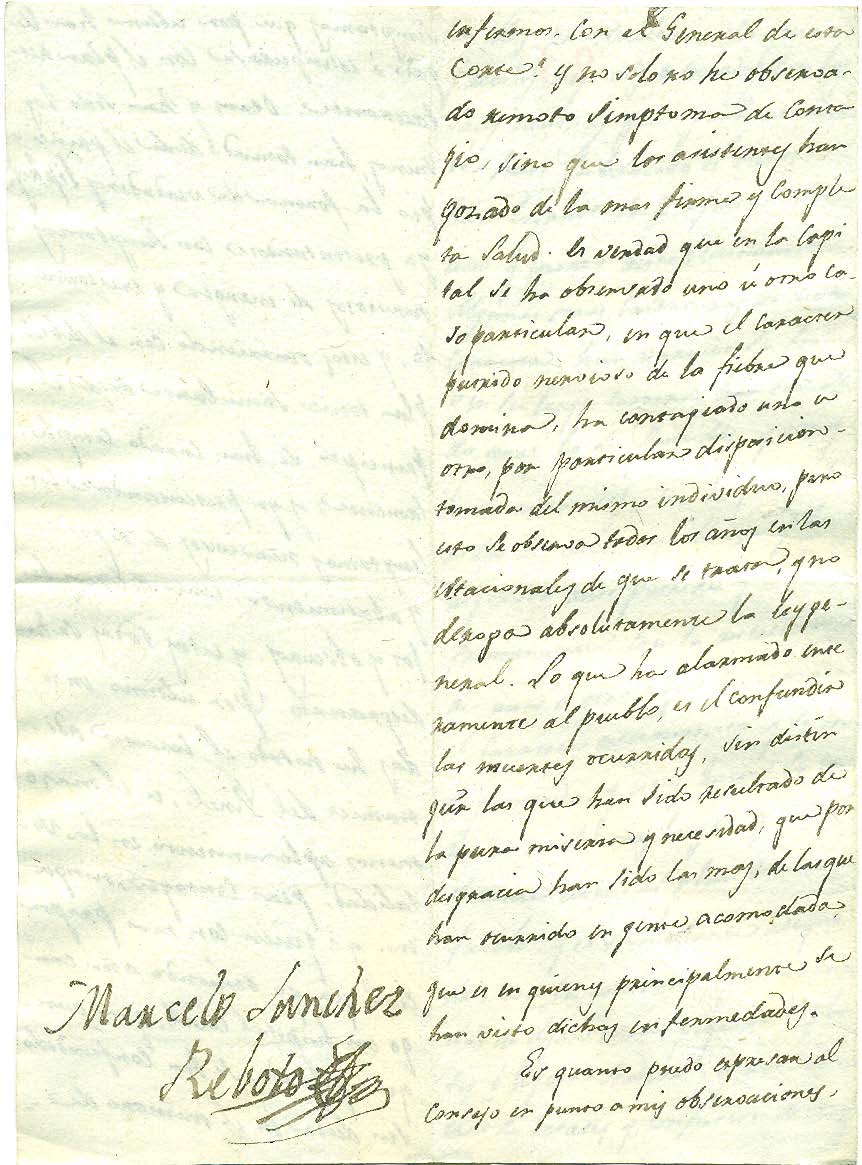 enfermos. Con el General de esta
Corte: y no solo no he observa-
do remoto Simptoma de Conta
gio, sino que los asistentes han
gozado de la mas firme y Comple
ta Salud. Es verdad que en la Capi
tal se ha observado uno ú otro ca-
so particular, en que el Caracter
putrido nervioso de la fiebre que
domina, ha contagiado uno u
otro, por particular disposicion-
tomada del mismo individuo, pero
esto se observa todos los años en las
estacionales de que se trata, y no
deroga absolutamente la ley ge-
neral. Lo que ha alarmado ente
ramente al pueblo, es el confundir
las muertes ocurridas, sin distin
guir las que han sido resultado de
la pura miseria y necesidad, que por
desgracia han sido las mas, de las que
han ocurrido en gente acomodada
que es en quienes principalmente se
han visto dichas enfermedades.
Es quanto puedo expresar al
Consejo en punto a mis observaciones,
Marcelo Sanchez
Reboto